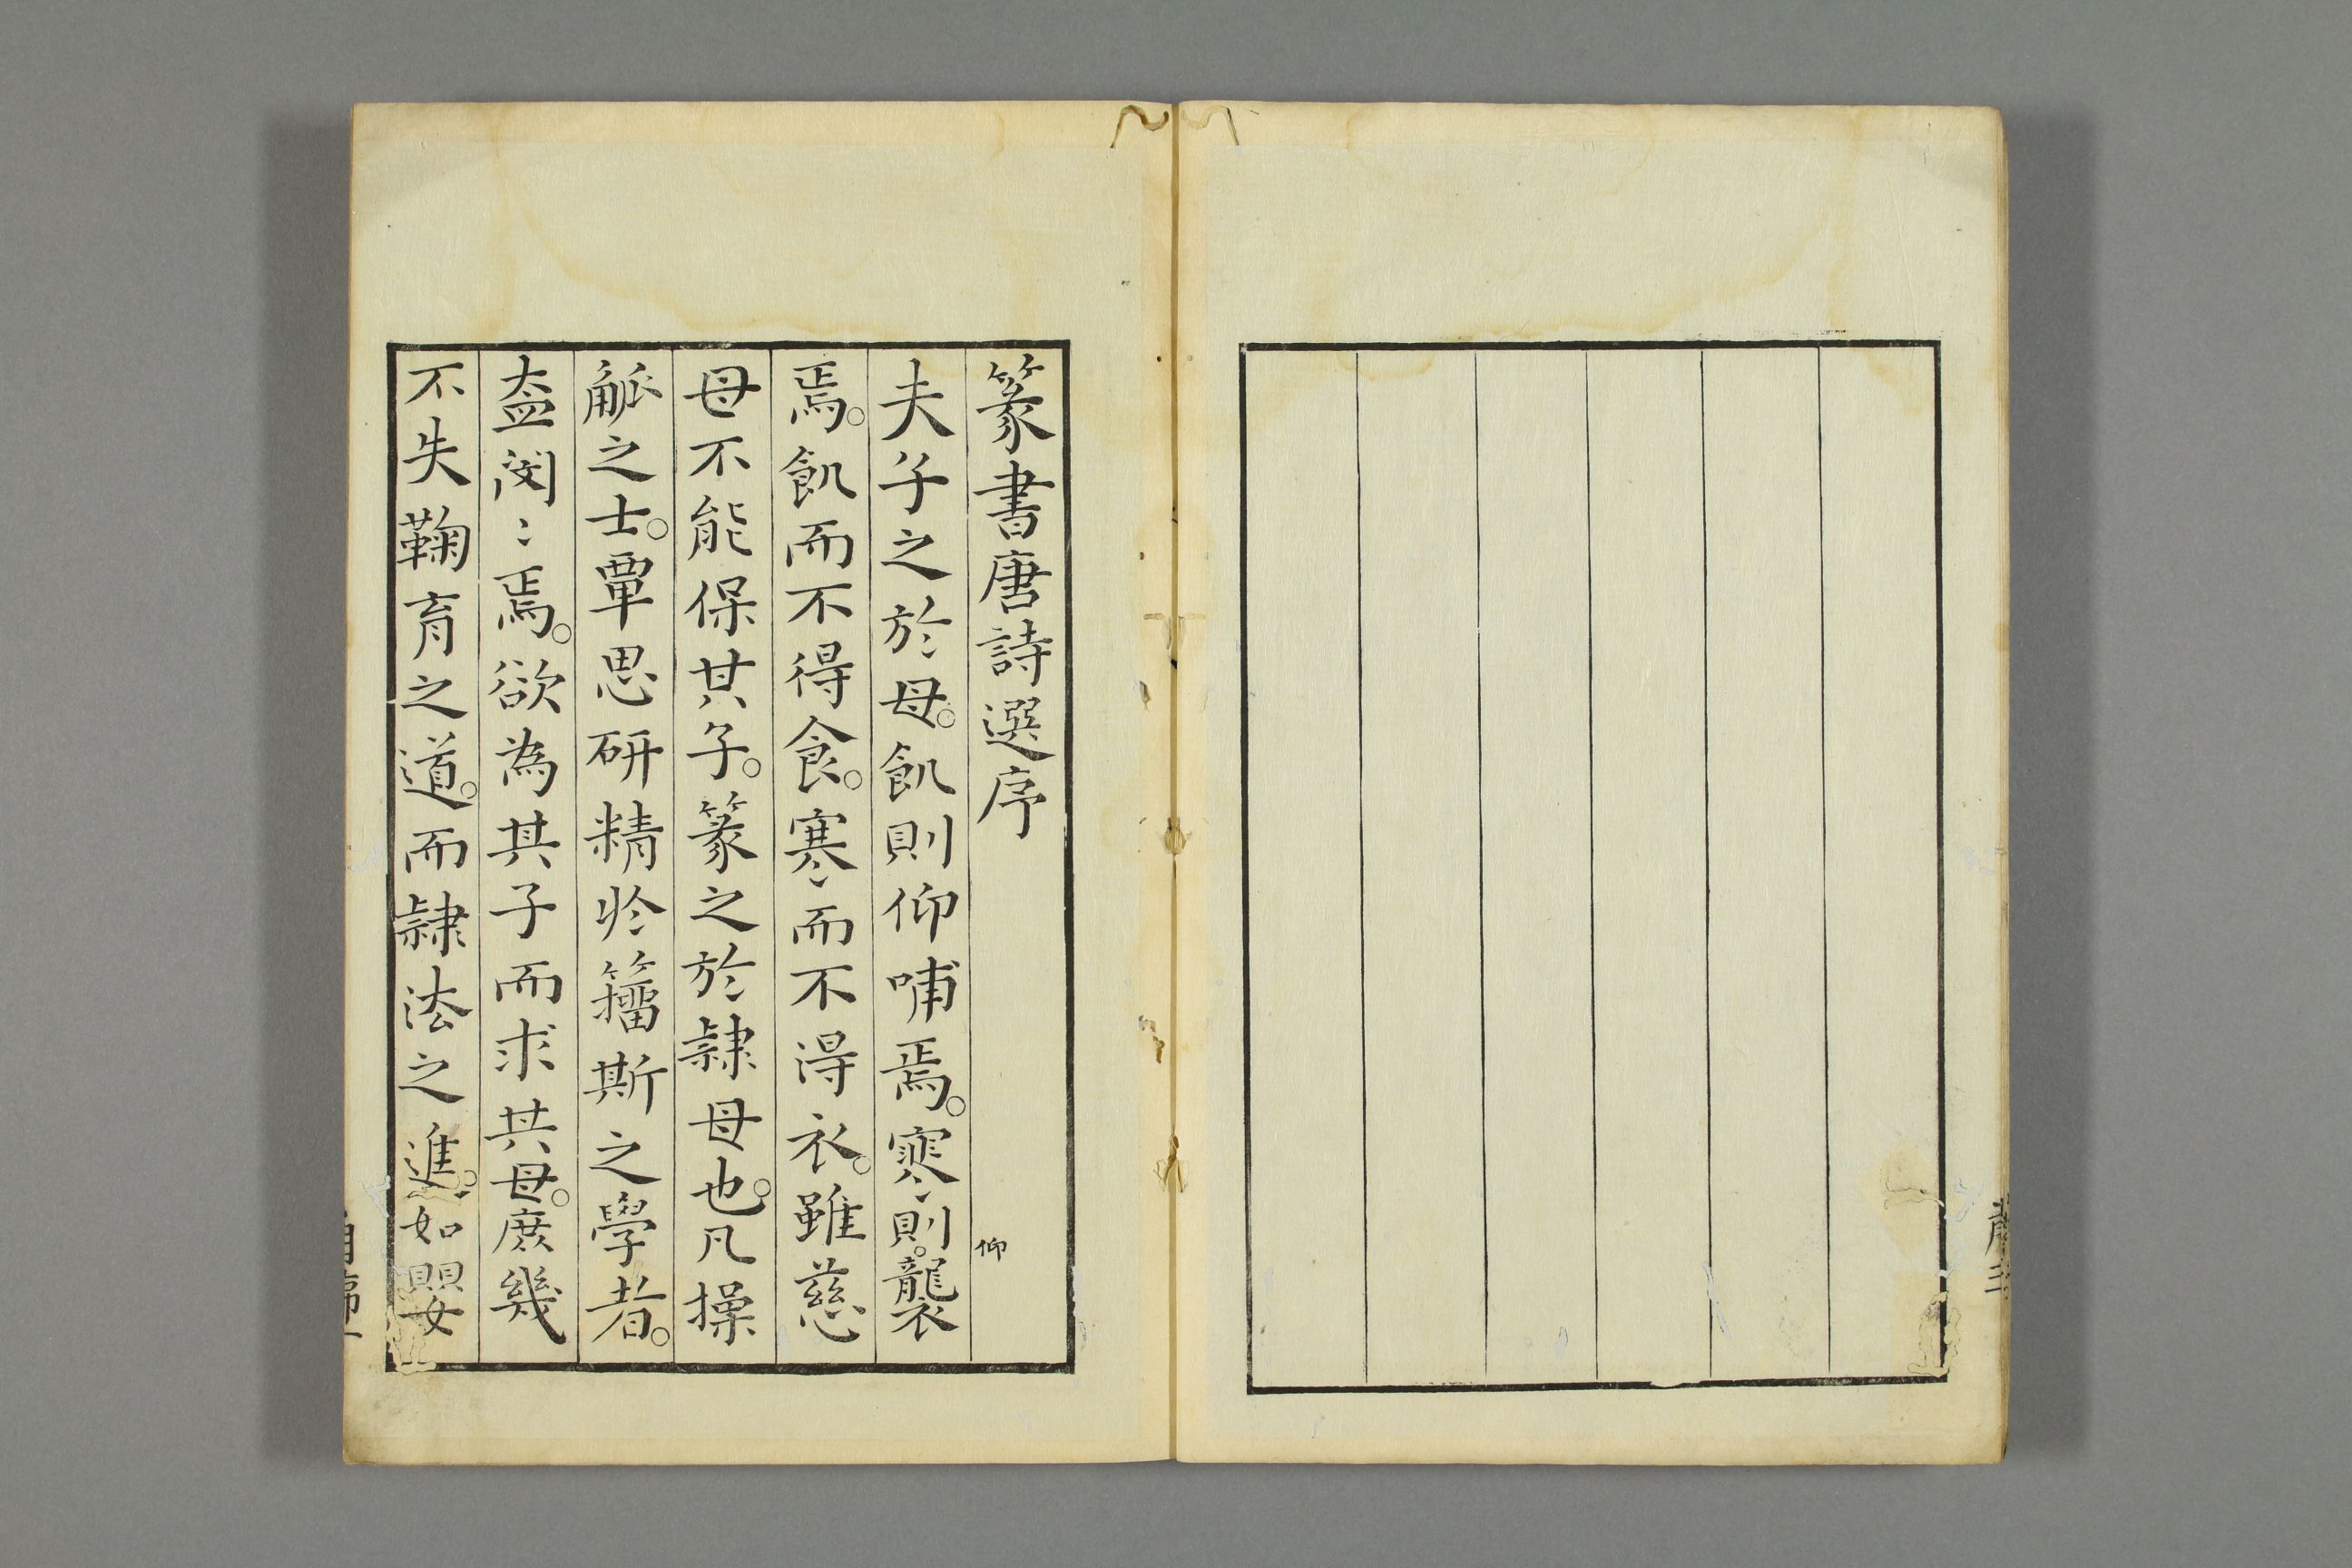 篆書唐詩選序
夫子之於母。飢則仰哺焉。寒則。襲
仰
焉。飢而不得食。寒而不得衣。雖慈
母不能保其子。篆之於隷母也。凡操
觚之士。覃思研精於籀斯之學者。
盇閔〻焉。欲為其子而求其母。庶幾
不失鞠育之道。而隷法之進。如嬰